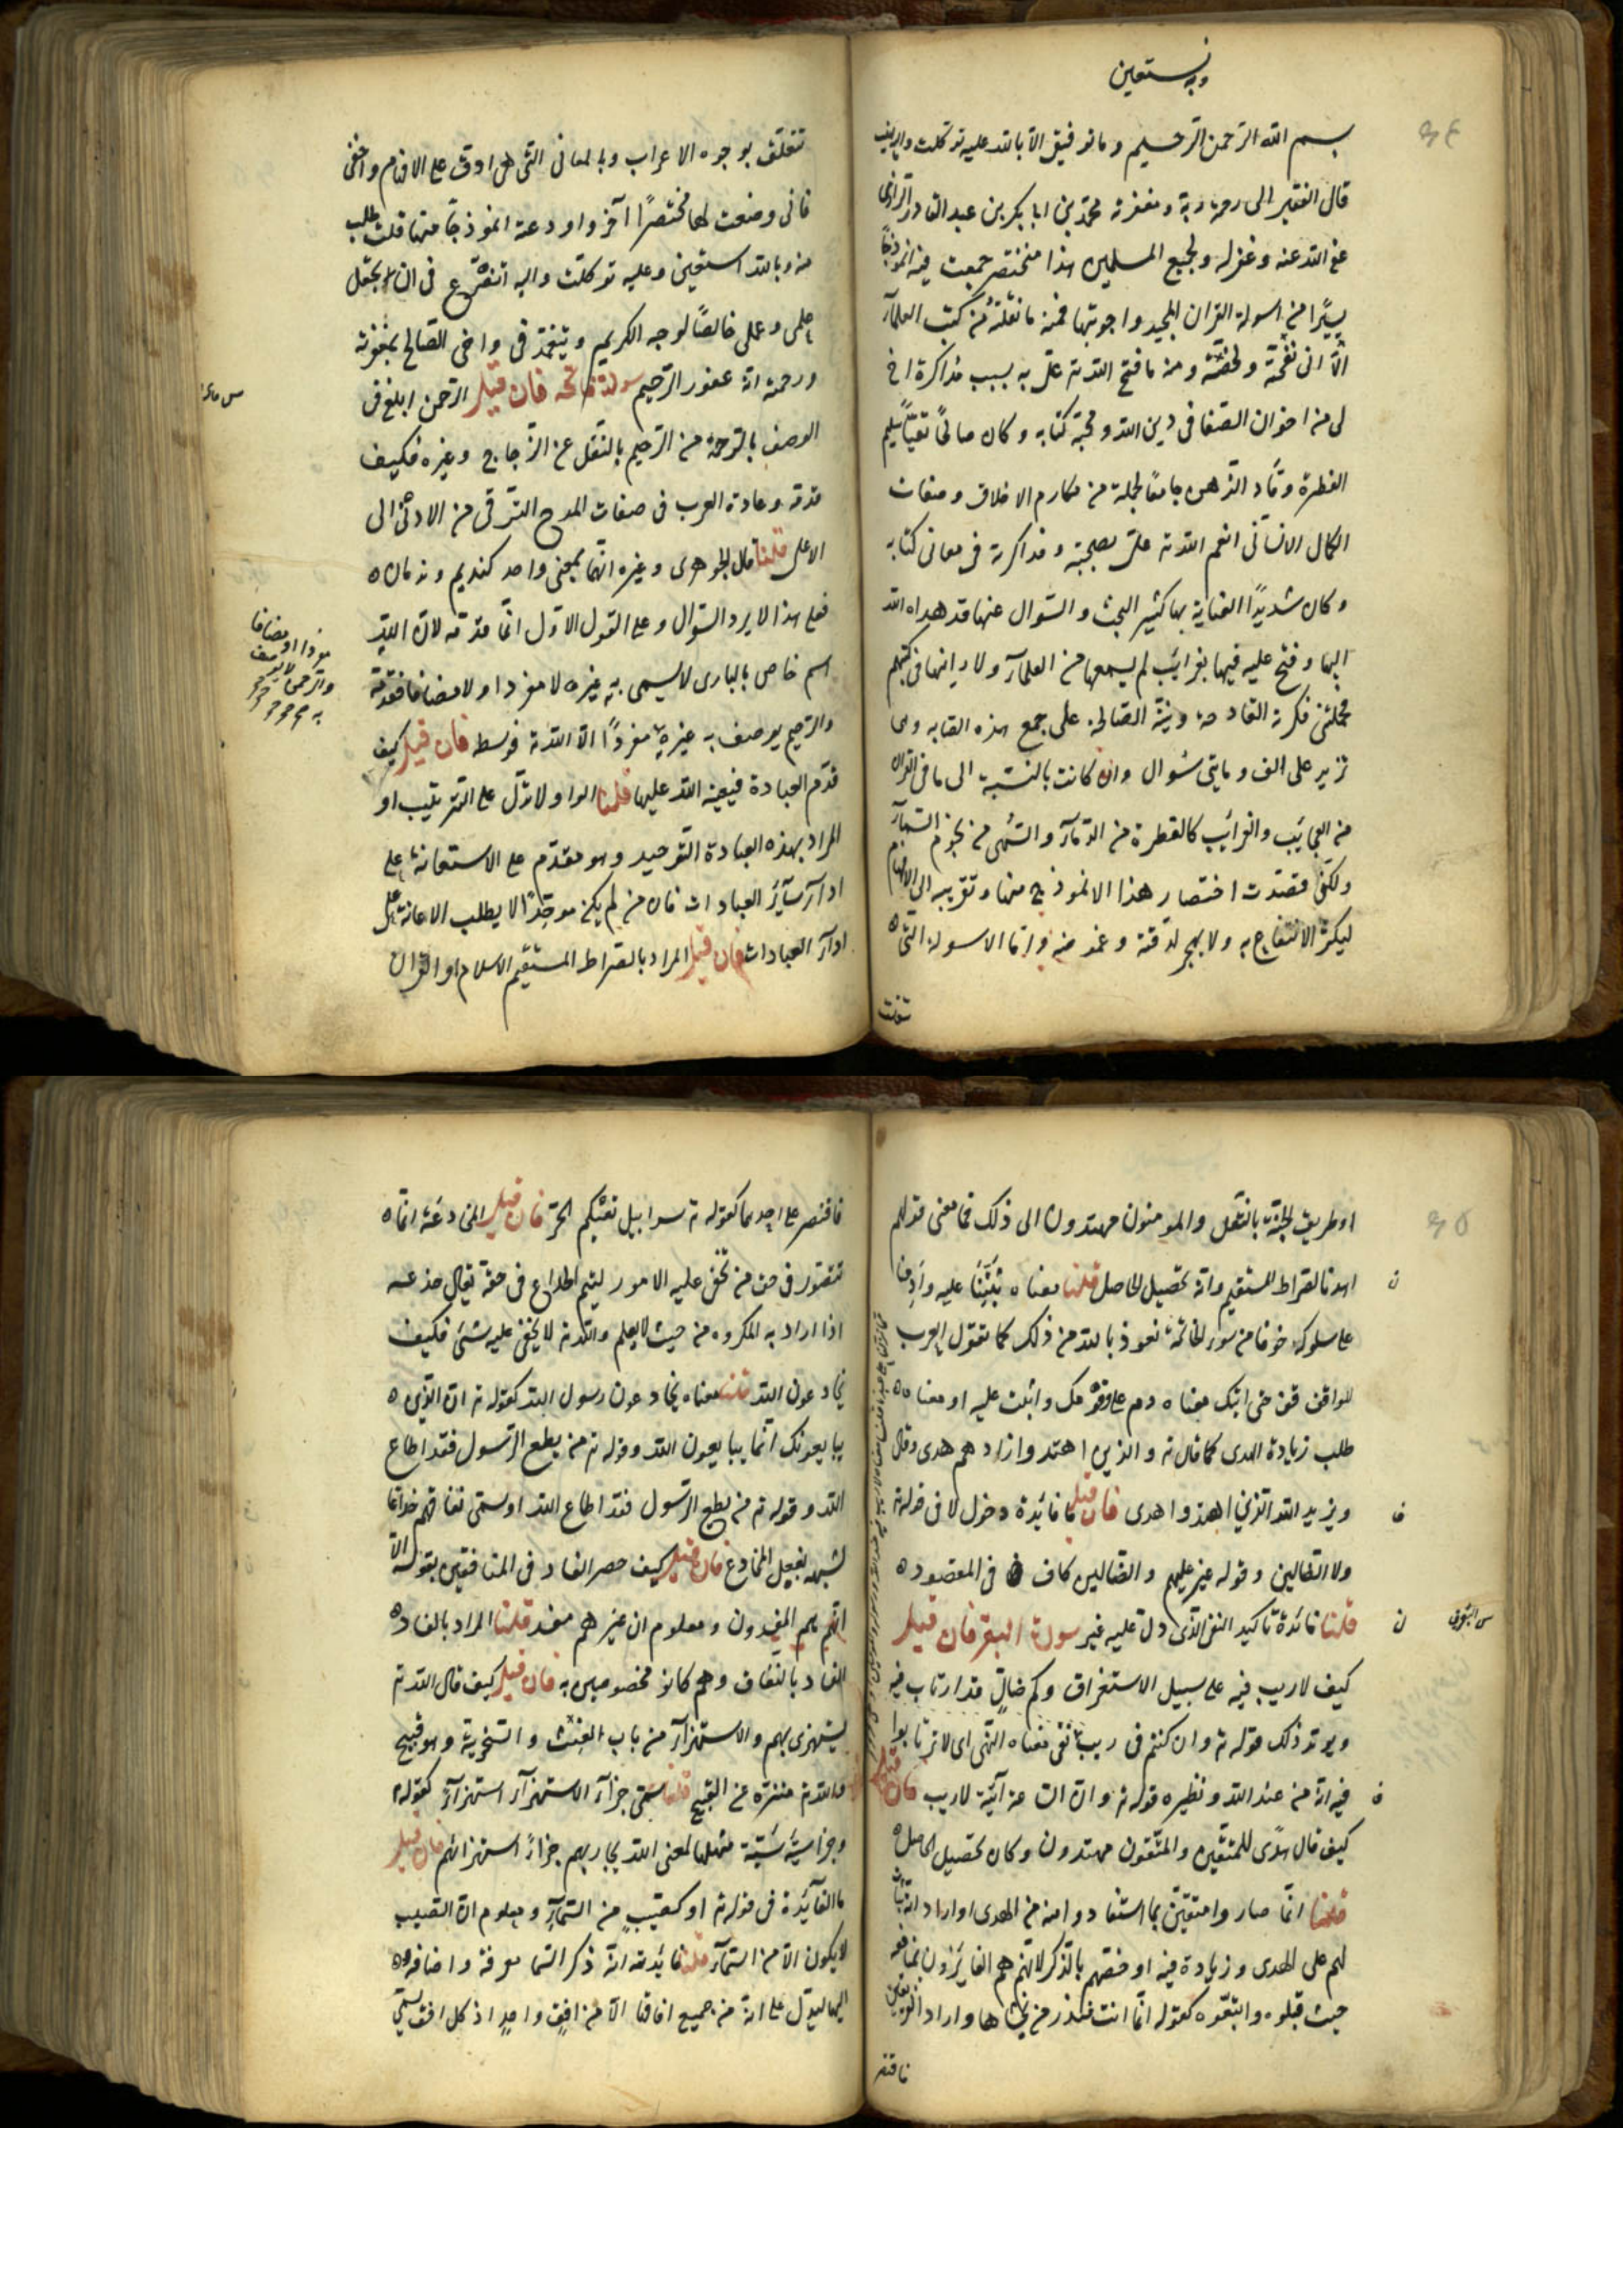 وبه نستعين
بسم الله الرحمن الرحيم وما توفيقي الا بالله عليه توكلت واليه انيب
قال الفقير الى رحمة ربه ومغفرته محمد بن ابا بكر بن عبد القادر الرازى
عفا الله عنه وغفر له ولجميع المسلمين هذا مختصر جمعت فيه انموذجًا
يسيرًا من اسولة القران المجيد واجوبتها فمنه ما نقلته من كتب العلمآء
الّا انى نقحته ولخصته ومنه ما فتح الله ته علىّ به بسبب مذاكرة اخ
لى من اخوان الصفا فى دين الله ومحبة كتابه وكان صالحًا تقيًّا سليم
الفطرة وقّاد الذهن جامعًا لجملة من مكارم الاخلاق وصفات
الكمال الانسانى انعم الله ته علىّ بصحبته ومذاكرته فى معانى كتابه
وكان شديدًا العناية بها كثير البحث والسّوال عنها قد هداه الله
اليها وفتح عليه فيها بغرائب لم يسمعها من العلمآء ولا رانها فى كتبهم
فحملتنى فكرته القادحة ونيته الصالحة على جمع هذه
تزيد على الف ومايتى سُوال وان كانت بالنسبة الى ما فى القران
من العجايب والغرائب كالقطرة من الدّمآء والسّهى من نجوم السمآء
ولكنى قصدت اختصار هذا الانموذج منها وتقريبه الى الافهام
ليكثر الانتفاع به ولا يهجر لدقته وغموضه وامّا الاسولة التى
تتعلق
تتعلق بوجوه الاعراب وبالمعانى التى هى ادق على الافهام واخفى
فانى وضعت لها مختصرًا آخر واودعته انموذجًا منها قلت طلب
منه وبالله استعين وعليه توكلت واليه اتضرّع فى ان يجعل
علمى وعملى خالصًا لوجهه الكريم ويتغمّدنى واخى الصّالح بمغفرته
ورحمته انه غفور الرّحيم سولة فاتحه فان قيل الرّحمن ابلغ فى
الوصف بالرّحمة من الرّحيم بالنّقل عن الزّجاج وغيره فكيف
قدمه وعادة العرب فى صفات المدح الترقّى من الادنى الى
الاعلى قلنا قال الجوهرى وغيره انّهما بمعنى واحد كنديم وندمان
فعلى هذا لا يرد السّوال وعلى القول الاوّل انّما قدّمه لانّ الله
اسم خاص بالبارى لا يسمى به غيره لا مفردا ولا مضافا فقدمه
والرّحيم يوصف به غيره مفردًا الّا الله ته فوسطه فان قيل كيف
قدّم العبادة قلنا الواو لا تدّل على التّرتيب او
المراد بهذه العبادة التّوحيد وهو مقدّم على الاستعانة على
ادآء سآئر العبادات فان من لم يكن موحدًا لا يطلب الاعانة على
ادآء العبادات فان قيل المراد بالصراط المستقيم الاسلام او القران
او طريق الجنّة بالنّقل والمومنون مهتدون الى ذلك فما معنى قولهم
اهدنا الصراط المستقيم وانّه تحصيل الحاصل قلنا معناه ثبّتنا عليه وادمنا
على سلوكه خوفا من سوء الخاتمة نعوذ بالله من ذلك كما تقول العرب
للواقف قف حتى اتيك معناه دم على وقوفك واثبت عليه او معناه
طلب زيادة الهدى كما قال ته والذين اهتدوا زادهم هدى وقال
ويزيد الله الذين اهتدوا هدى فان قيل ما فائدة دخول لا فى قوله ته
ولا الضّالين وقوله غير عليهم والضّالين كاف فى المقصود
قلنا فائدة تاكيد النفى الذى دلّ عليه غير سورة البقر فان قيل
كيف لا ريب فيه على سبيل الاستغراق وكم ضالّ قد ارتاب فيه
ويويد ذلك قوله ته وان كنتم فى ريب نفى معناه النّهى اى لا ترتابوا
فيه انّه من عند الله ونظيره قوله ته وانّ الساعة آتية لا ريب فان قيل
كيف قال هدًى للمتّقين والمتّقون مهتدون وكان تحصيل الحاصل
قلنا انّما صاروا متقيّن بما استفادوا منه من الهدى او اراد انه ثبات
لهم على الهدى وزيادة فيه او خصّهم بالذّكر لانّهم هم الفايزون بمنافعه
حيث قبلوه واتبّعوه كقوله انّما انت منذر من يخشاها واراد الفريقين
فاقتصر
فاقتصر على احدهما كقوله ته سرابيل تقيكم الحرّ فان قيل المخادعة انّما
تتصّور فى حق من تخفى عليه الامور ليتم الخداع فى حقه يقال خدعه
اذا اراد به المكروه من حيث لا يعلم والله ته لا يخفى عليه شئ فكيف
يخادعون الله قلنا معناه يخادعون رسول الله كقوله ته ان الذين
يبايعونك انّما يبايعون الله وقوله ته من يطع الرّسول فقد اطاع
الله وقوله ته من يطع الرّسول فقد اطاع الله او سمّى نفاقهم خداعا
لشبهه بفعل المخادع فان قيل كيف حصر الفساد فى المنافقين بقوله الا
انّهم هم المفسدون ومعلوم ان غيرهم مفسد قلنا المراد بالفساد
الفساد بالنّفاق وهم كانوا مخصوصين به فان قيل كيف قال الله ته
يستهزى بهم والاستهزآء من باب العبث والسّخرية وهو قبيح
والله ته منزّه عن القبيح قلنا سمّى جزآء الاستهزآء استهزآءً كقوله
وجزا سيئة سيّئة مثلها المعنى الله يجازيهم جزآءً استهزائهم فان قيل
ما الفآئدة فى قوله ته او كصّيب من السّمآء ومعلوم انّ الصّيب
لا يكون الّا من السّمآء قلنا فائدته انّه ذكر السّما معرفة واضافه
اليها ليدّل على انّه من جميع افاقها الّا من افقٍ واحدٍ اذ كل افق يسمّى